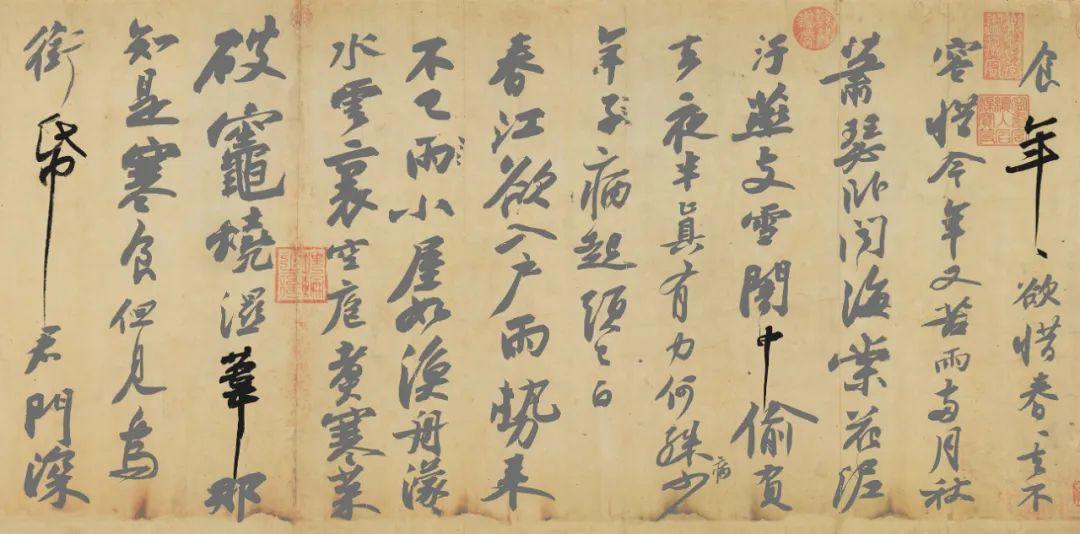 食年〻欲惜春〻去不
容惜今年又苦雨兩月秋
蕭瑟臥聞海棠花泥
汙燕支雪闇中偷負
去夜半真有力何殊少病
年子病起頭已白
春江欲入戶雨勢來
不已雨小屋如漁舟濛〻
水雲裏空庖煮寒菜
破竈燒濕葦那
知是寒食但見烏
銜帋君門深